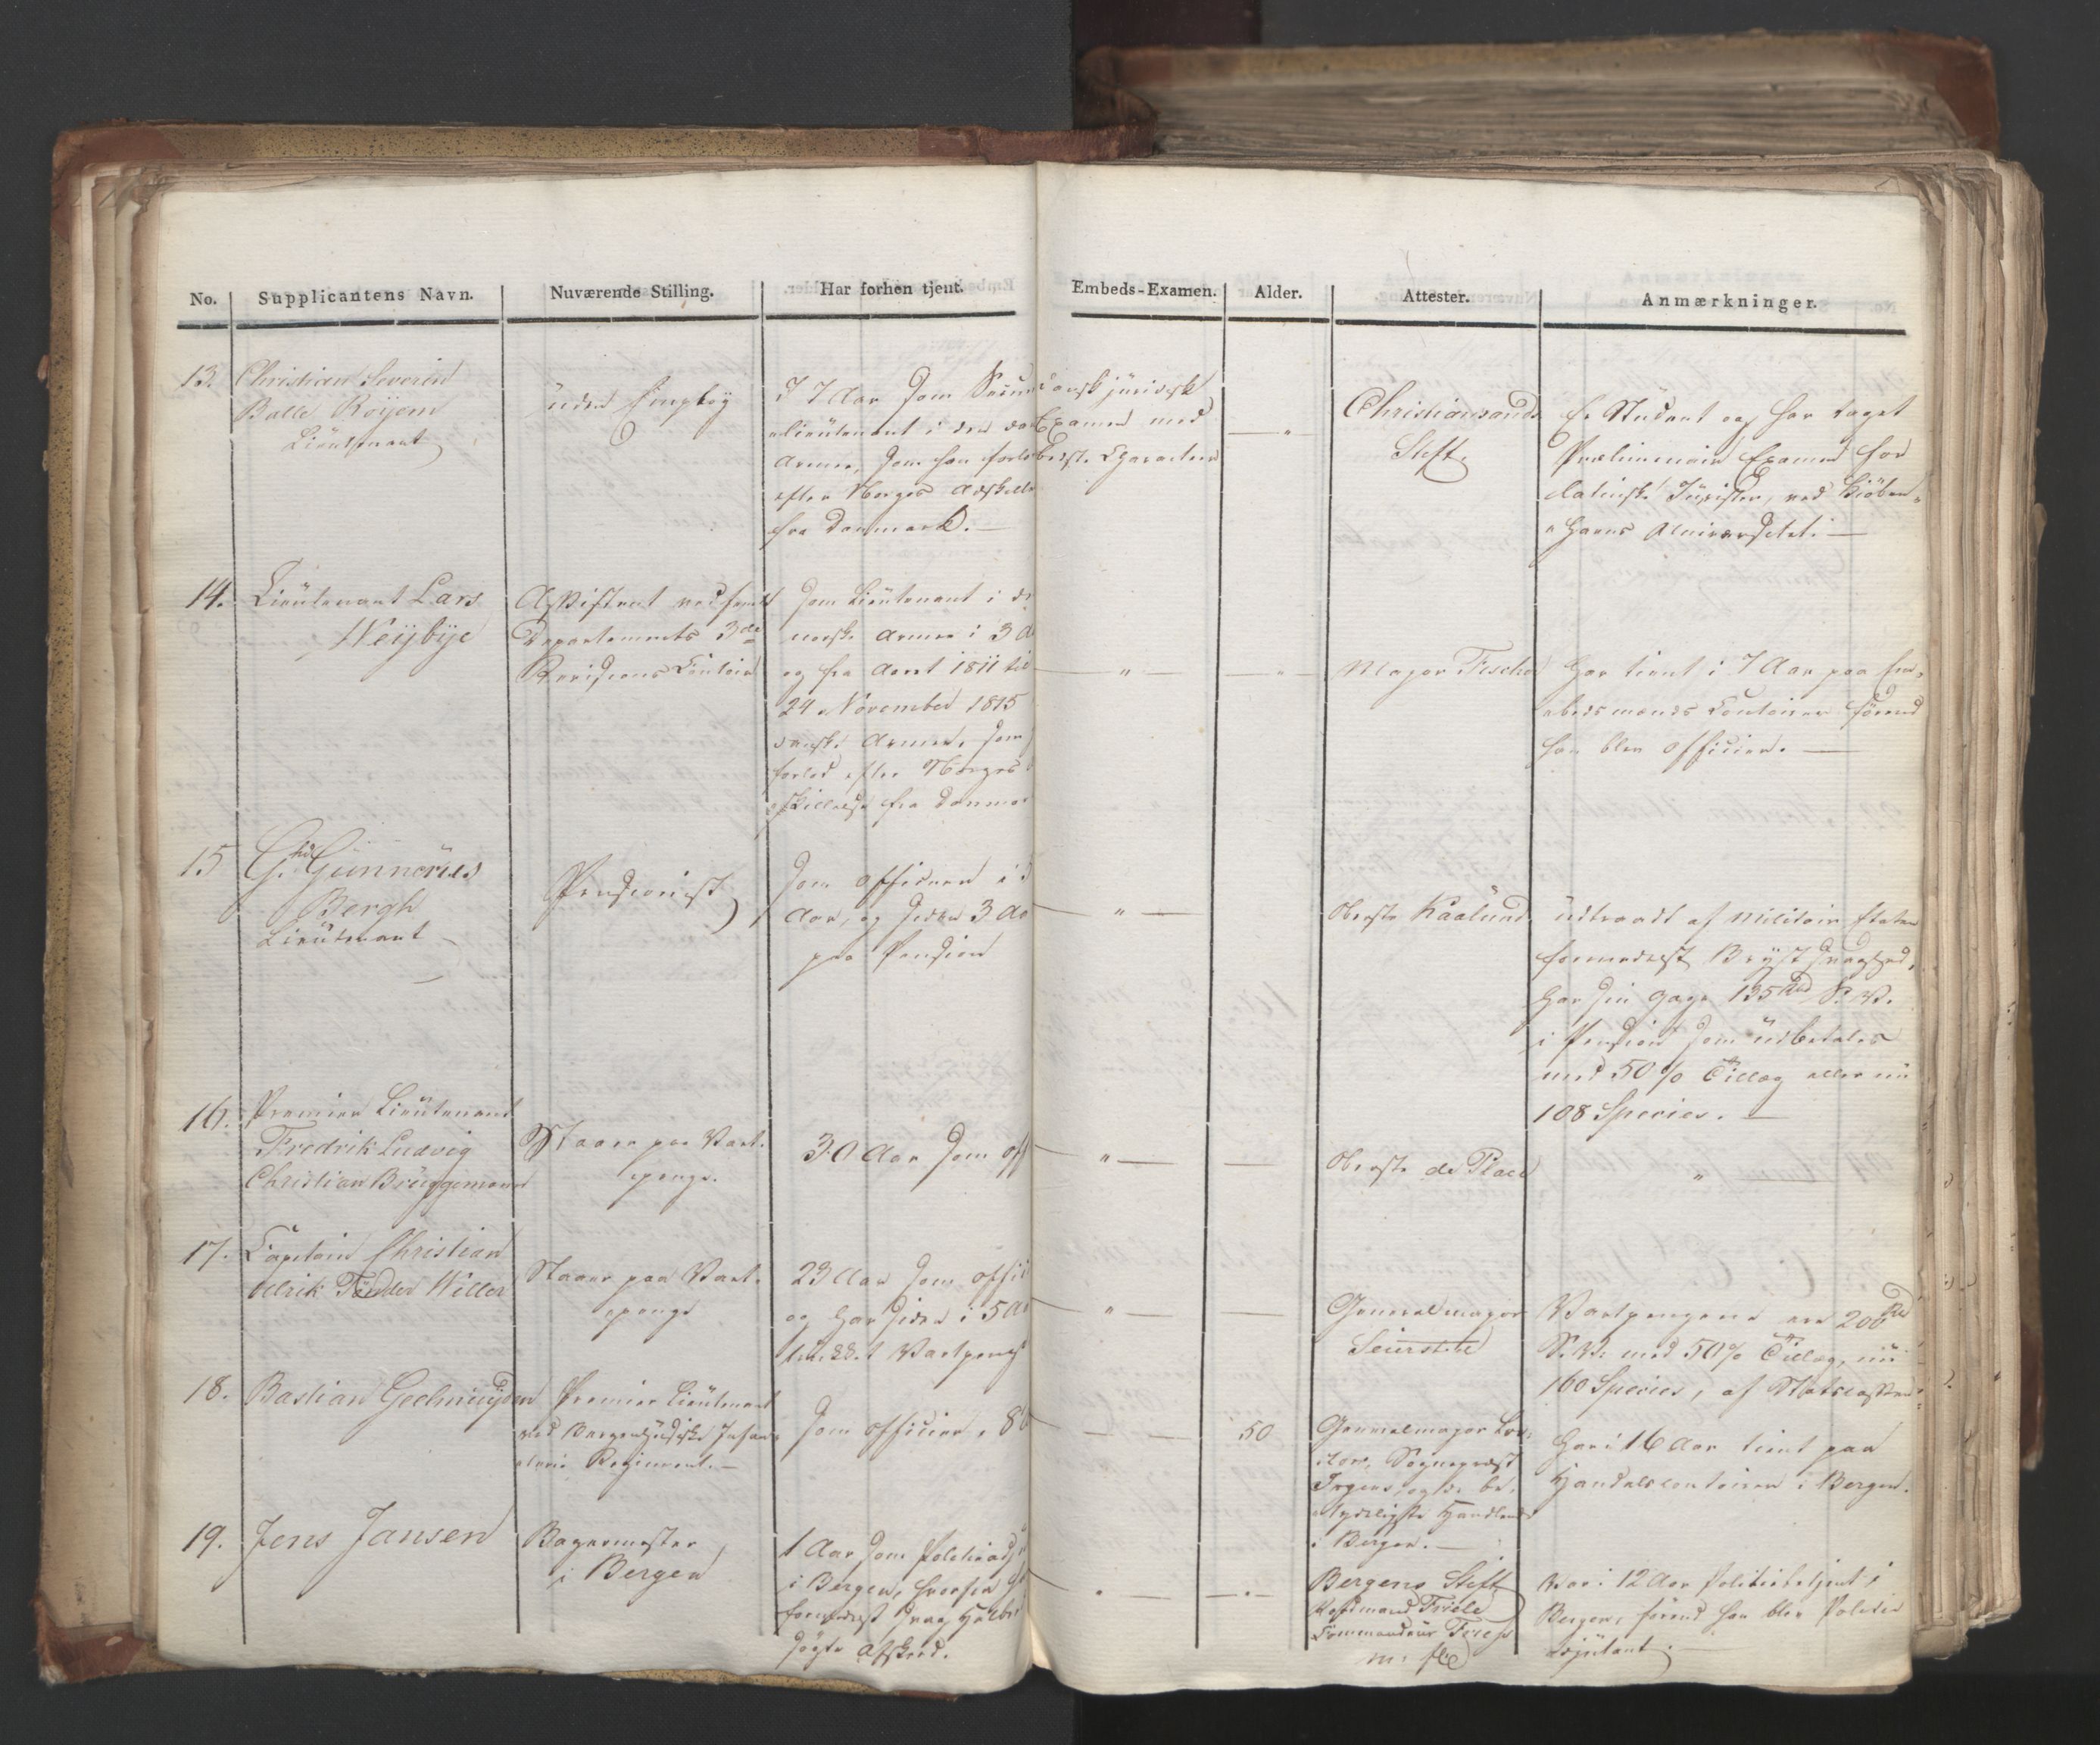 No. Supplicantens Navn. Nuværende Stilling. Har forhen tjent. Embeds-Examen. Alder. Attester. Anmærkninger.
13. Christian Severin
Balle Röyem
Lieutenant
uden
I 7 Aar som
Lieutenant i den
Armee, som han
efter Norges Adskille
fra Danmark. —
Dansk juridisk
Examen med
beste Character
— „
Christiansands
Stift.
Er Student og har taget
Præliminair Examen for
latinske Jurister, ved Kiöben-
havns Universitet. —
14. Lieutenant Lars
Weÿbÿe
Assistent ved
Departements 3de
Revisions Contoir
som Lieutenant i d
norske Armee i 3 A
og fra Aaret 1811 til
24 November 1815
danske Armee, som
forlod efter Norges
skillelse fra Danmar
— „ —
— „
Major Fischer
Har tient i 7 Aar paa Em-
bedsmænds Contoirer førend
han blev Officier. —
15 G. Gunnerus
Bergh
Lieutenant
Pensionist
som Officier i
Aar, og siden 3 Aa
paa Pension
— „ —
Oberste Kaalund
Udtraadt af Militair Etaten
formedelst Brÿst Svaghed,
har sin Gage 135 Rd S.V.
i Pension som udbetales
med 50 % Tillæg eller nu
108 Species. —
16. Premier Lieutenant
Fredrik Ludvig
Christian Brüggemann
Staaer paa Vart-
penge.
30 Aar som Off
— „ —
—
Oberste de Place
„
17. Capitain Christian
Ulrik Tönder Willer
Staaer paa Vart-
penge
23 Aar som Offic
og har siden i 5 Aa
Vartpenge
— „ —
—
Generalmajor
Seierstedt
Vartpengene ere 200 Rd
S.V. med 50% Tillæg, nu
160 Species, af Statscassen
18. Bastian Geelmuÿden
Premier Lieutenant
ved Bergenhusiske Infan-
terie Regiment. —
som Officier, 8
— —
50
Generalmajor
Sognepræst
Irgens, og de be-
tydeligste Handlende
i Bergen. —
Har i 16 Aar tient paa
Handelscontoirer i Bergen.
19. Jens Jansen
Bagermester
i Bergen
1 Aar som Politiadj
i Bergen, hvorfra
formedelst svag Helbr
søgte Afskeed.
— „ —
Bergens Stift
Kiøbmand Friele
Commandeur
m: fl:
Var i 12 Aar Politiebetjent i
Bergen, førend han blev Politie
Adjutant. —